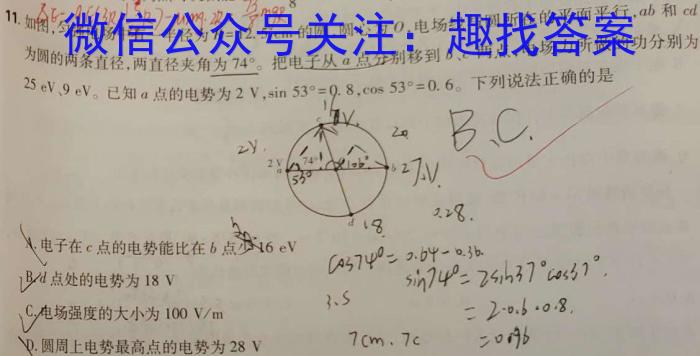 微信公众号关注：趣找答案
11. 如图,
圆所在的平面平行, ab 和 cd
为圆的两条直径,两直径夹角为 74°。把电子从 a 点分别移到 b、c 两点,电场力所做的功分别为
25 eV、9 eV。已知 a 点的电势为 2 V,sin 53°=0.8,cos 53°=0.6。下列说法正确的是
B、C.
2V.
2 V
74°
53°
106°
27V.
a
b
c
d
18
0.28.
A. 电子在 c 点的电势能比在 b 点 16 eV
B. d 点处的电势为 18 V
C. 电场强度的大小为 100 V/m
D. 圆周上电势最高点的电势为 28 V
cos74°= 0.64-0.36
sin74°= 2sin37°cos37°.
= 2·0.6·0.8.
= 0.96
3.5
7cm. 7c